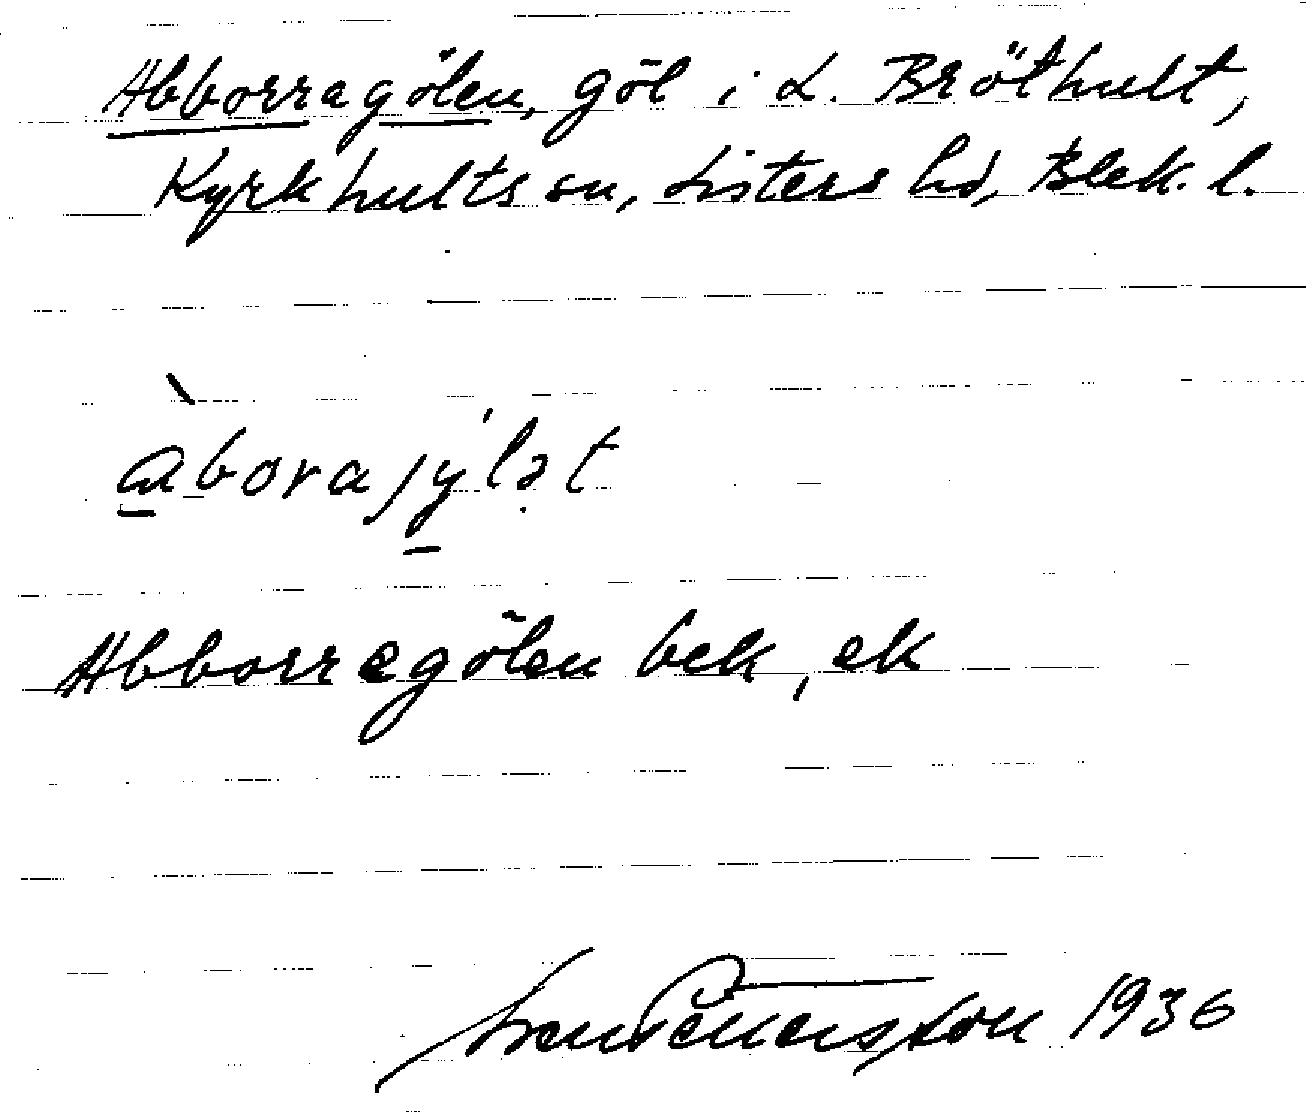 Abborragölen, göl i L. Bröthult,
Kyrkhults sn, Listers hd, Blek. l.
àboraȷy'lət
Abborregölen bek, ek
Sven Pettersson 1936